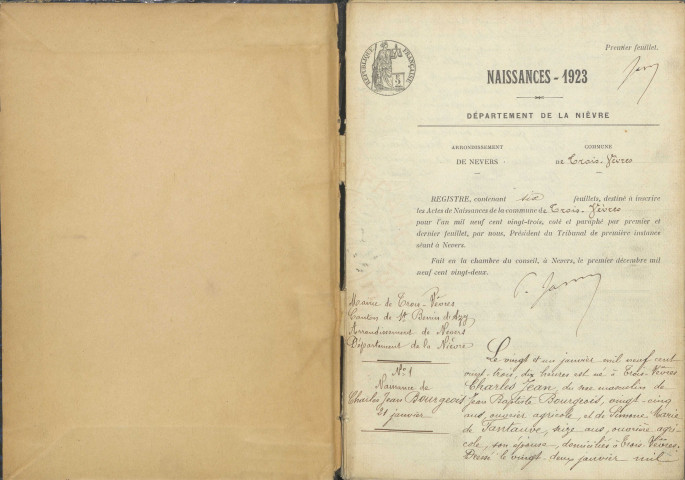 Premier feuillet.
RÉPUBLIQUE FRANÇAISE
NAISSANCES - 1923
DÉPARTEMENT DE LA NIÈVRE
ARRONDISSEMENT
DE NEVERS
COMMUNE
DE Trois-Vèvres
REGISTRE, contenant six feuillets, destiné à inscrire
les Actes de Naissances de la commune de Trois-Vèvres
pour l'an mil neuf cent vingt-trois, coté et paraphé par premier et
dernier feuillet, par nous, Président du Tribunal de première instance
séant à Nevers.
Fait en la chambre du conseil, à Nevers, le premier décembre mil
neuf cent vingt-deux.
Mairie de Trois-Vèvres
Canton de St Benin d'Azy
Arrondissement de Nevers
Département de la Nièvre
N° 1
Naissance de
Charles Jean Bourgeois
21 janvier
Le vingt et un janvier mil neuf cent
vingt-trois, dix heures est né à Trois-Vèvres
Charles Jean, du sexe masculin de
Jean Baptiste Bourgeois, vingt-cinq
ans, ouvrier agricole, et de Simone Marie
de Tantauve, seize ans, ouvrière agri-
cole, son épouse, domiciliés à Trois-Vèvres.
Dressé le vingt-deux janvier mil